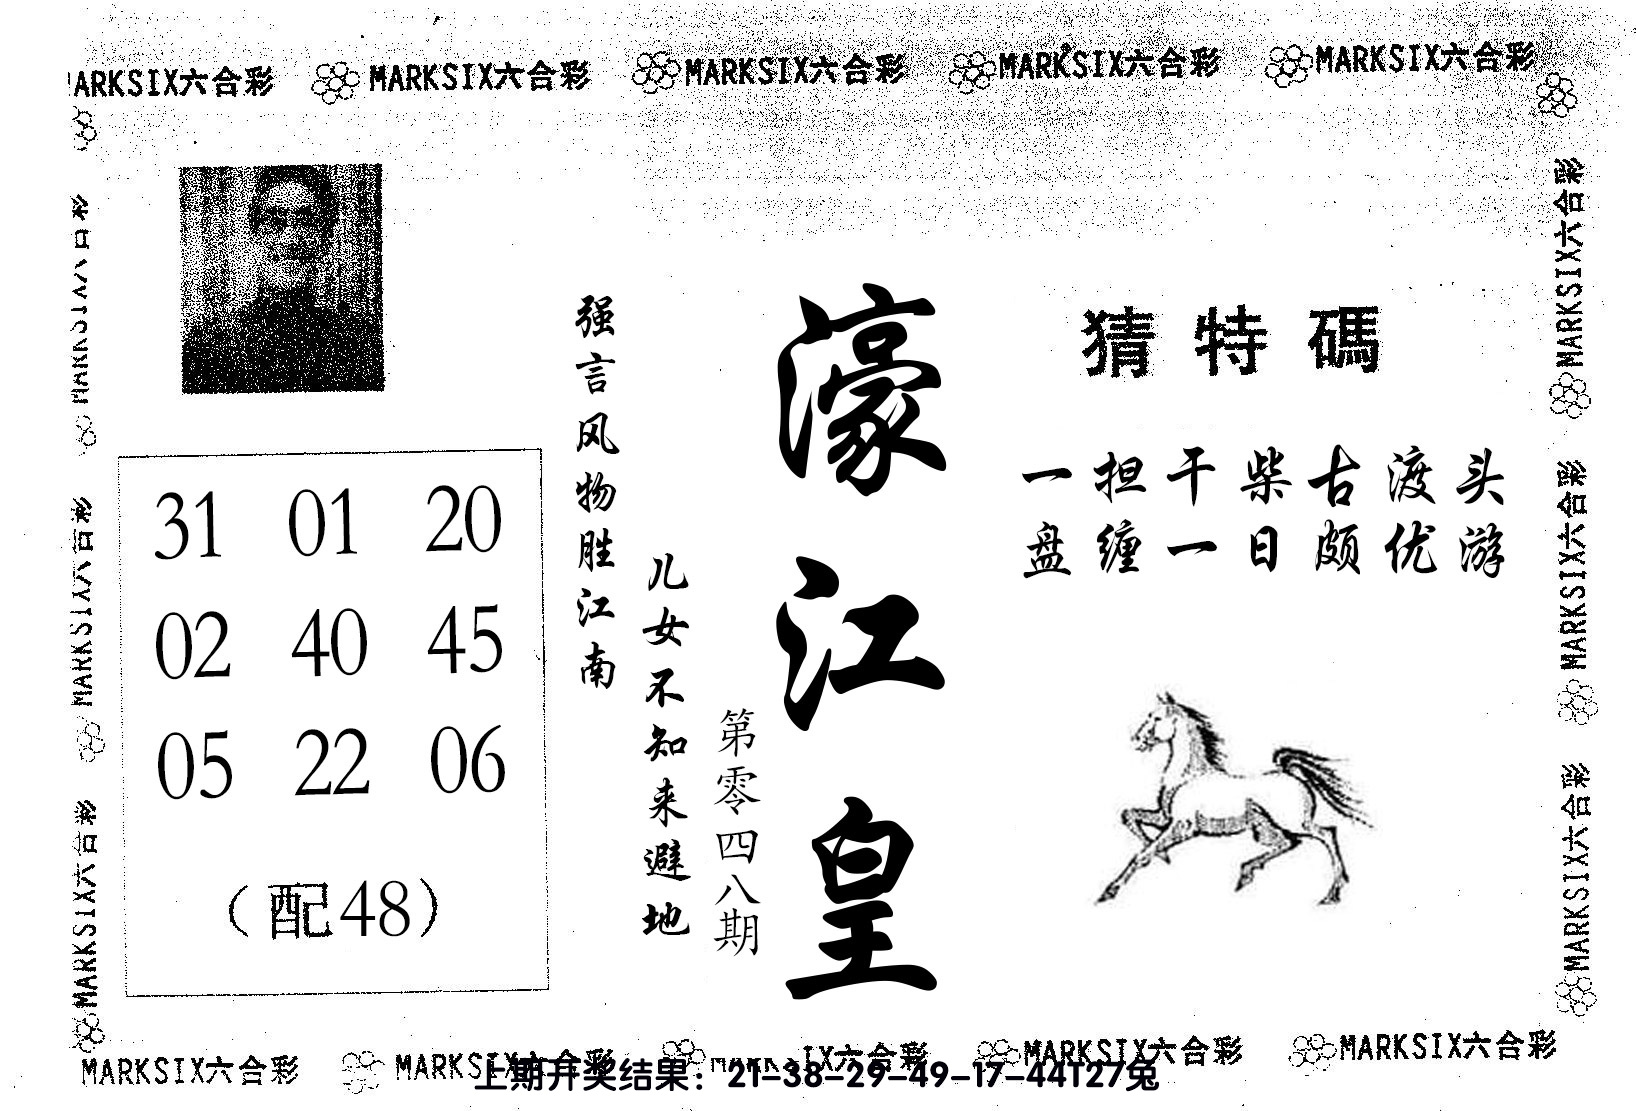 MARKSIX六合彩 MARKSIX六合彩 MARKSIX六合彩 MARKSIX六合彩 MARKSIX六合彩
猜特碼
一担干柴古渡头
盘缠一日颇优游
濠江皇
第零四八期
儿女不知来避地
强言风物胜江南
31 01 20
02 40 45
05 22 06
（配48）
MARKSIX六合彩
MARKSIX六合彩
MARKSIX六合彩
MARKSIX六合彩
MARKSIX六合彩
MARKSIX六合彩
MARKSIX六合彩 MARKSIX六合彩 IX六合彩 MARKSIX六合彩 MARKSIX六合彩
上期开奖结果：21-38-29-49-17-44T27兔